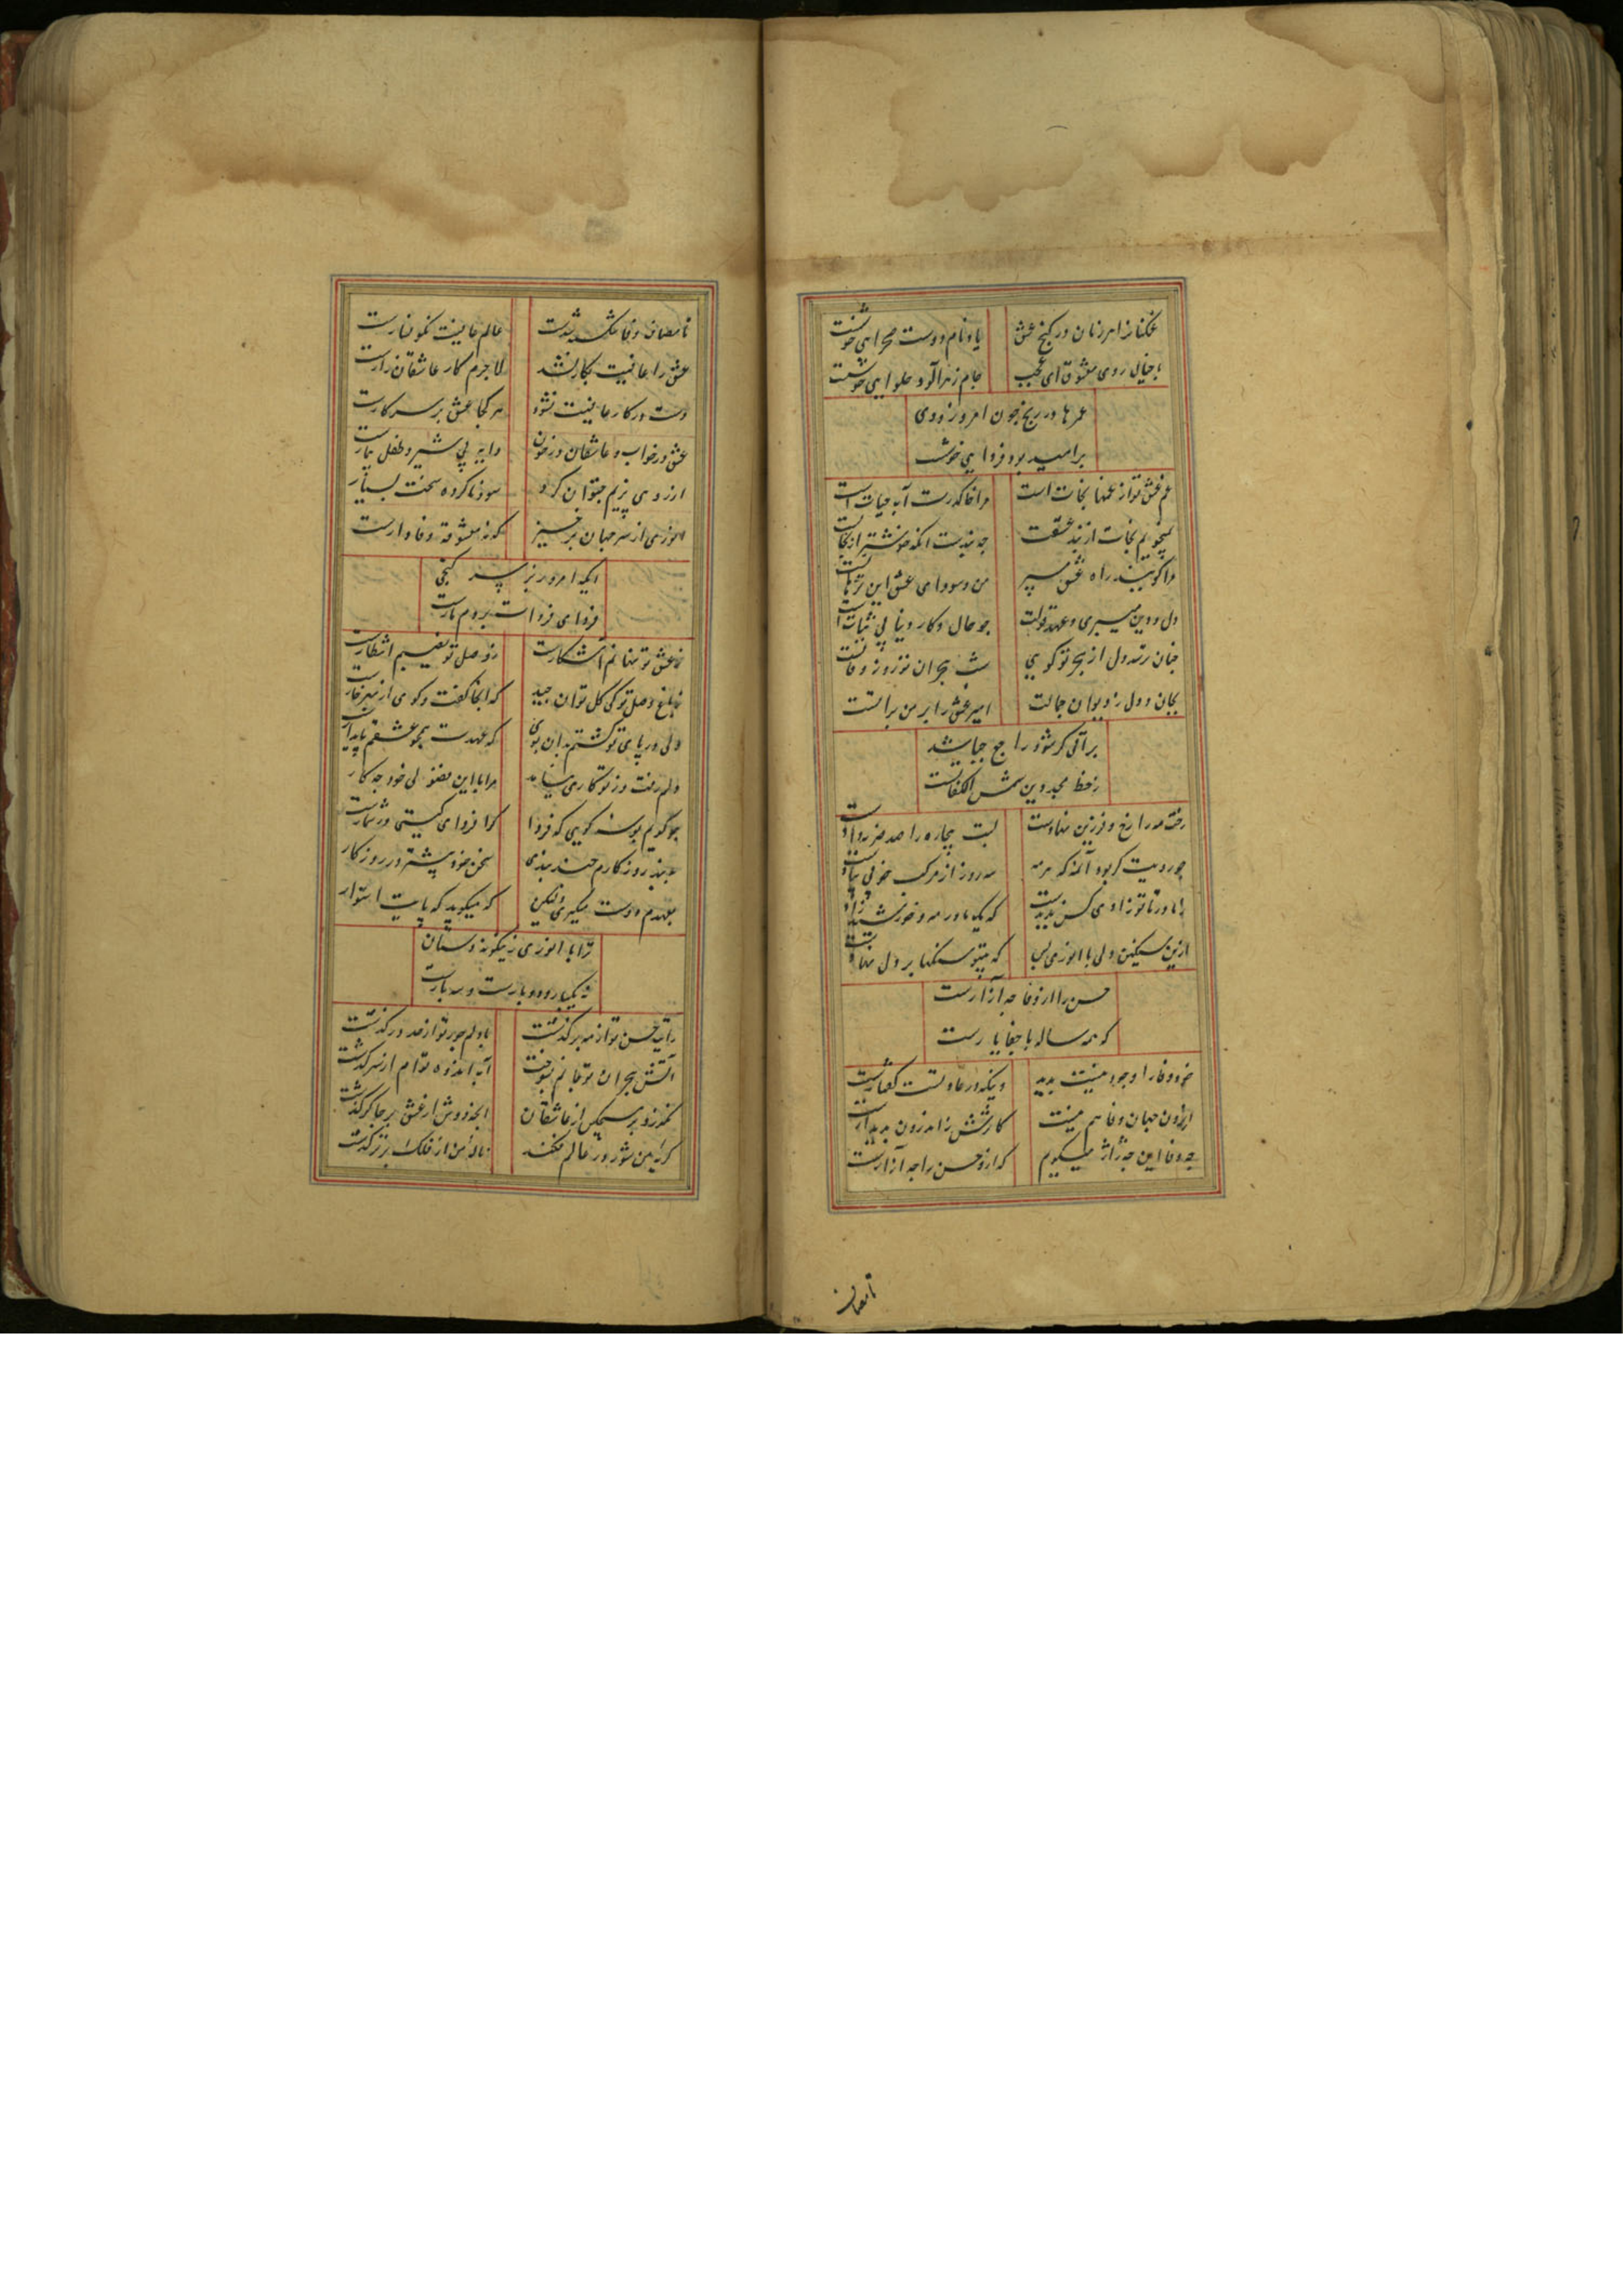 غمکنان را هر زمان در کنج عشق یاد نام دوست صحرایی خوشست
با خیال روی معشوق ای عجب جام زهرآلود حلوایی خوشست
عمرها در رنج چون امروز و دی
بر امید بود فردایی خوشست
غم عشق تو از غمها نجات است مرا خاک درت آب حیات است
نمیجویم نجات از بند عشقت چه بندست آنکه خوشتر از نجات است
مرا گویند راه عشق مسپر من و سودای عشق این ترهات است
دل و دین میبری و عهد قولت چو حال و کار دنیا بی ثبات است
چنان ترسد دل از هجر تو گویی شب هجران تو روز وفات است
بجان و دل ز دیوان جمالت امیر عشق را بر من براتست
براتی گر شود راجع چه باشد
ز خط مجد دین شمس الکفات است
رخت مه را رخ و فرزین نهادست لبت بیجاده را صد ضربه دادست
چو رویت کی بود آن مه که هر مه سه روز از مرکب خوبی پیادست
ز مادر تا تو زادی کس ندیدست که یک مادر مه و خورشید زادست
ازین سنگین دلی با انوری بس که بی تو سنگها بر دل نهادست
حسن را از وفا چه آزارست
که همه ساله با جفا یارست
خود وفا را وجود نیست پدید وینکه در عادتست گفتارست
از برون جهان وفا هم نیست کاثرش ز اندرون پدیدارست
چه وفا این چه ژاژ میگویم که ازو حسن را چه آزارست
تا مصاف
تا مصاف وفا شکسته شدست عالم عافیت نگونسارست
عشق را عافیت بکار نشد لاجرم کار عاشقان زارست
دست در کار عافیت نشود هر کجا عشق بر سر کارست
عشق در خواب و عاشقان در خون دایه بی شیر و طفل بیمارست
آرزو می پزیم چتوان کرد سود ناکرده سخت بسیارست
انوری از سر جهان برخیز که نه معشوقه وفادارست
ایکه امروز بر سر گنجی
فردای فردات بر دم مارست
ز عشق تو نهانم آشکارست ز وصل تو نصیبم انتظارست
ز باغ وصل تو کی گل توان چید که آنجا گفت و گوی از بهر خارست
ولی در پای تو گشتم بدان بوی که عهدت همچو عشقم پایدارست
دلم رفت و ز تو کاری نیامد مرا با این فضولی خود چه کار
چو گویم بوسه گویی که فردا کرا فردای گیتی در شمارست
ببند روزگارم چند بندی سخن خود بیشتر در روزگار
بعهدم دست میگیری ولیکن که میگوید که پایت استوار
ترا با انوری زینگونه دستان
نه یکبار و دو بارست و سه بارست
رایت حسن تو از مه برگذشت با دلم جور تو از حد درگذشت
آتش هجران تو جانم بسوخت آب اندوه توام از سر گذشت
نگذرد بر هیچکس از عاشقان آنچه دوش از عشق بر چاکر گذشت
گریه من شور در عالم فکند ناله من از فلک برتر گذشت